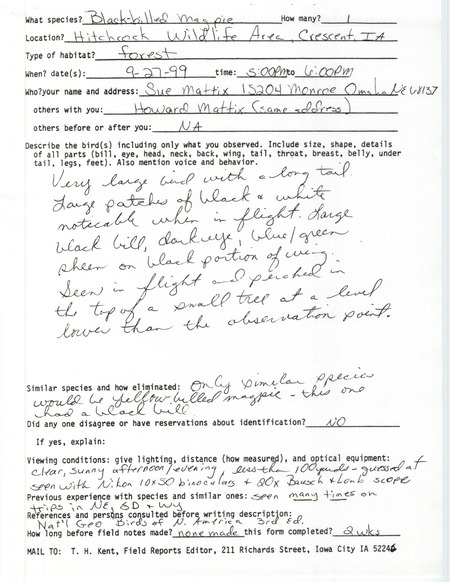 What species? Black-billed Magpie How many? 1
Location? Hitchcock Wildlife Area, Crescent, IA
Type of habitat? forest
When? date(s): 9-27-99 time: 5:00PM to 6:00PM
Who?your name and address: Sue Mattix 15204 Monroe Omaha NE 68137
others with you: Howard Mattix (same address)
others before or after you: NA
Describe the bird(s) including only what you observed. Include size, shape, details
of all parts (bill, eye, head, neck, back, wing, tail, throat, breast, belly, under
tail, legs, feet). Also mention voice and behavior.
Very large bird with a long tail
Large patches of black & white
noticable when in flight. Large
black bill, dark eye, blue/green
sheen on black portion of wing.
Seen in flight and perched in
the top of a small tree at a level
lower than the observation point.
Similar species and how eliminated: only similar species
would be yellow-billed magpie - this one
had a black bill
Did any one disagree or have reservations about identification? NO
If yes, explain:
Viewing conditions: give lighting, distance (how measured), and optical equipment:
clear, sunny afternoon/evening, less than 100 yards - guessed at
seen with Nikon 10x50 binoculars & 20x Bausch & Lomb scope
Previous experience with species and similar ones: seen many times on
trips in NE, SD & WY
References and persons consulted before writing description:
Nat'l Geo Birds of N. America 3rd Ed.
How long before field notes made? none made this form completed? 2 wks
MAIL TO: T. H. Kent, Field Reports Editor, 211 Richards Street, Iowa City IA 52246